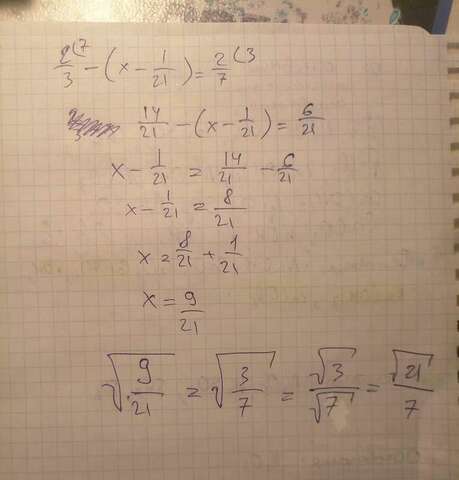 2/3 (7 − (x − 1/21) = 2/7 (3
14/21 − (x − 1/21) = 6/21
x − 1/21 = 14/21 − 6/21
x − 1/21 = 8/21
x = 8/21 + 1/21
x = 9/21
√(9/21) = √(3/7) = √3/√7 = √21/7